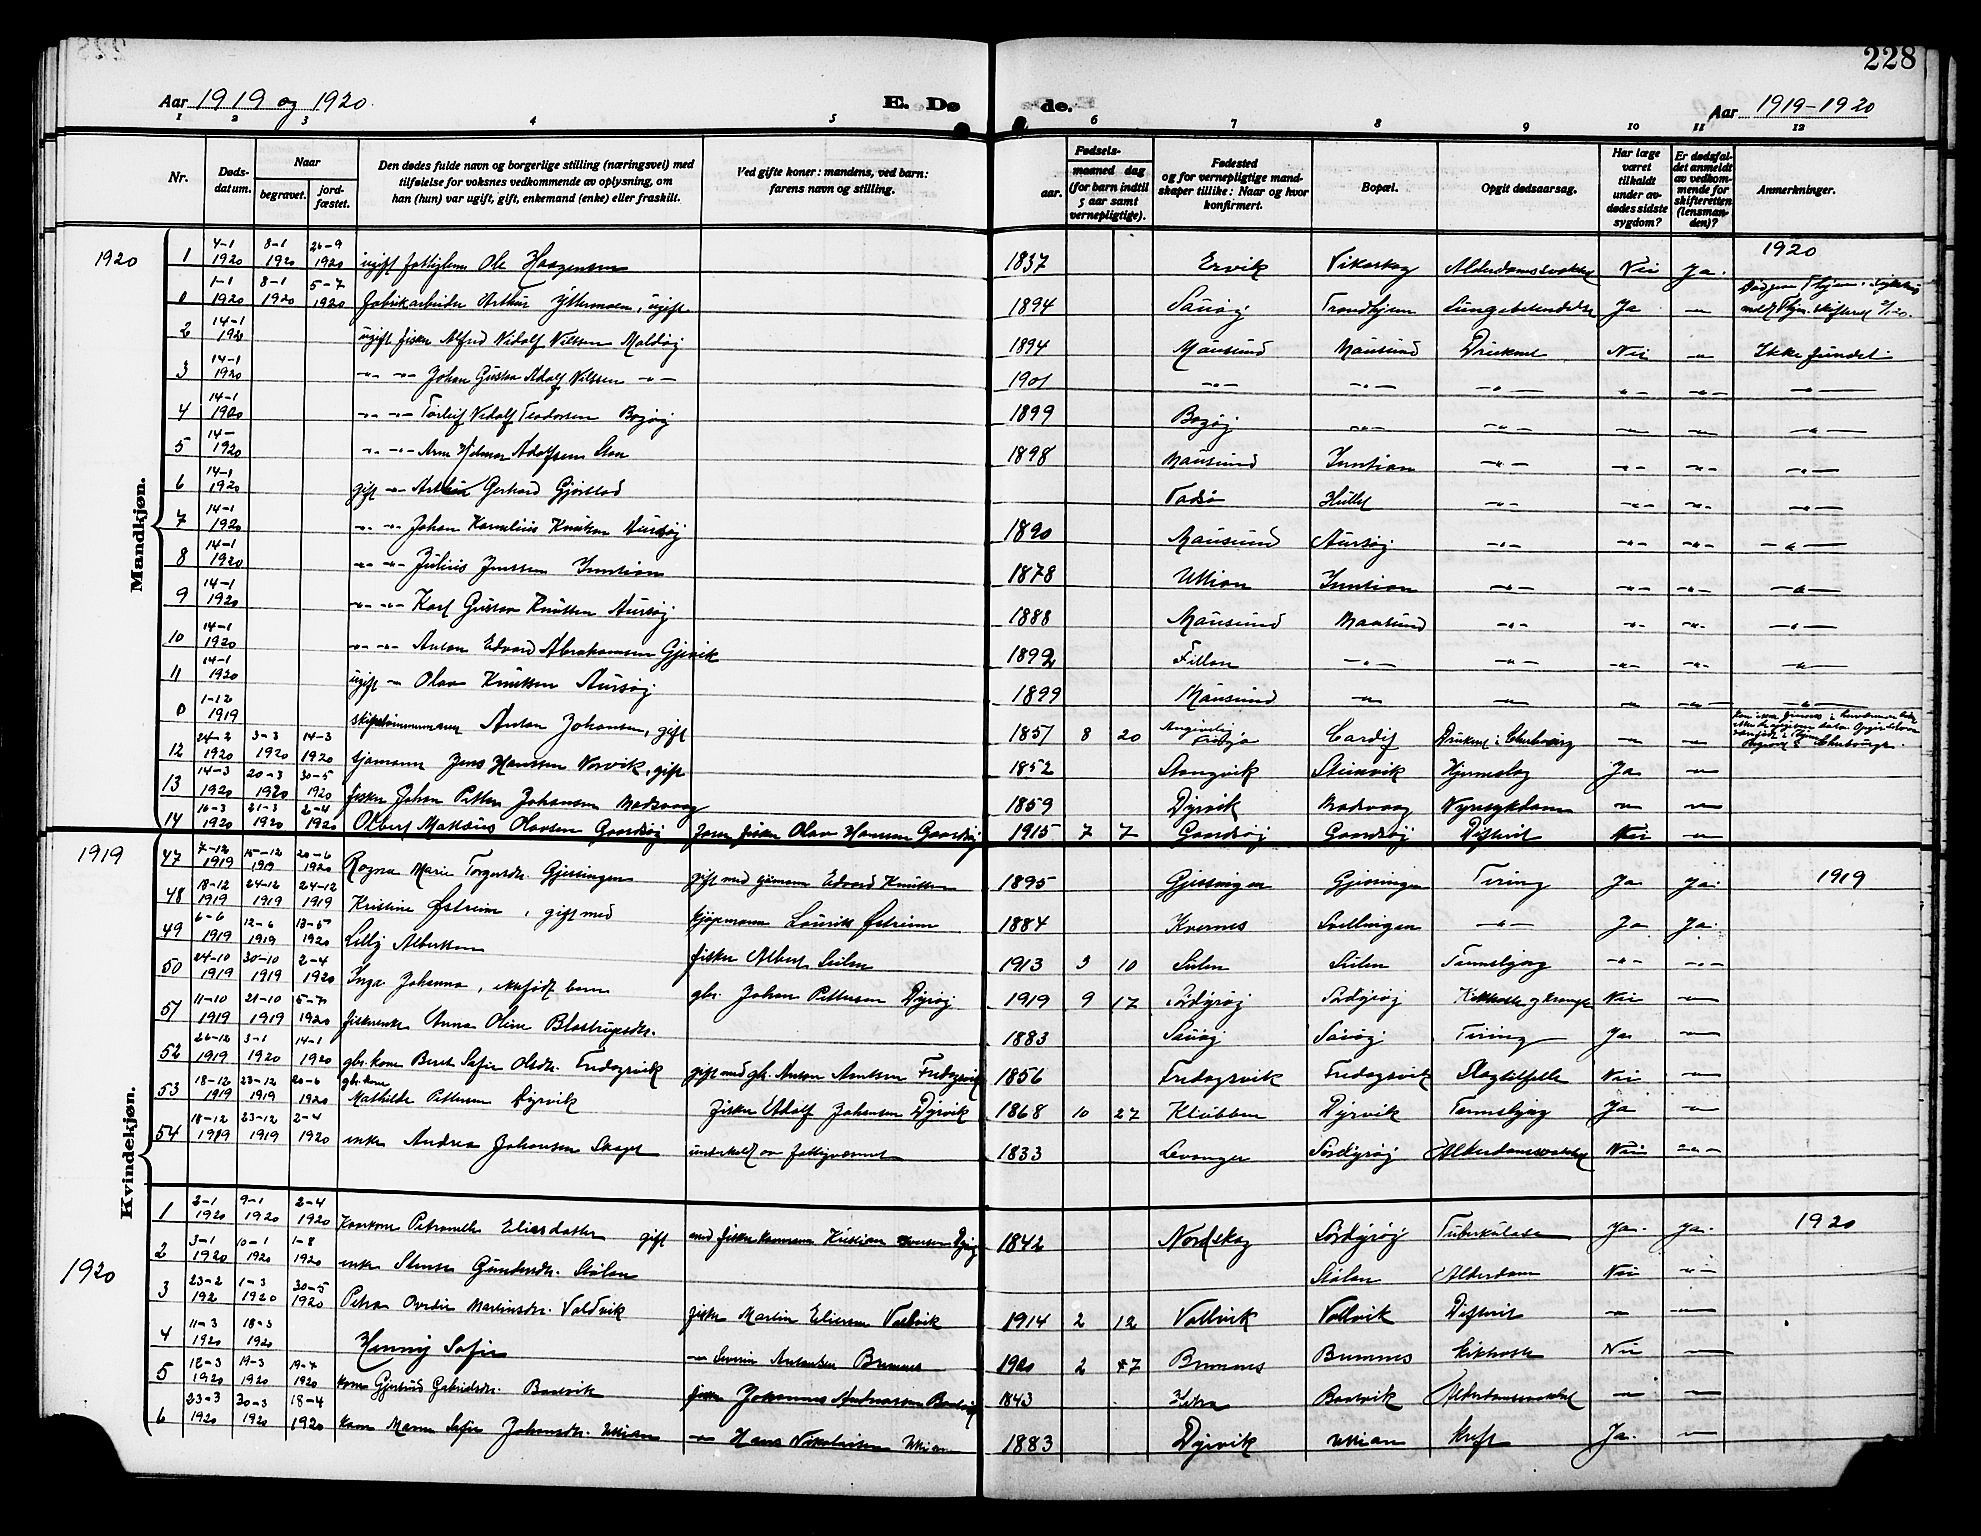 228
Aar 1919 og 1920. E. Dø de. Aar 1919-1920
1 2 3 4 5 6 7 8 9 10 11 12
Nr. Døds-datum. Naar begravet. jord-fæstet. Den dødes fulde navn og borgerlige stilling (næringsvei) med tilføielse for voksnes vedkommende av oplysning, om han (hun) var ugift, gift, enkemand (enke) eller fraskilt. Ved gifte koner: mandens, ved barn: farens navn og stilling. Fødsels- aar. maaned dag (for barn indtil 5 aar samt vernepligtige). Fødested og for vernepligtige mandskaper tillike: Naar og hvor konfirmert. Bopæl. Opgit dødsaarsag. Har læge været tilkaldt under avdødes sidste sygdom? Er dødsfaldet anmeldt av vedkommende for skifteretten (lensmanden)? Anmerkninger.
1920 Mandkjøn. 1920
1 4-1 1920 8-1 1920 26-9 1920 ugift fattiglem Ole Haagensen 1837 Ervik Vikaskag Alderdomssvakhet Nei Ja.
1 1-1 1920 8-1 1920 5-7 1920 fabrikarbeider Arthur Yttermoen, ugift 1894 Sauøy Trondhjem Lungebetendelse Ja -"-
2 14-1 1920 ugift fisker Alfred Vidolf Nilssen Maldøy 1894 Mausund Mausund Druknet Nei -"- Ikke fundet.
3 14-1 1920 -"- -"- Johan Gustav Adolf Nilssen -"- 1901 -"- -"- -"- -"- -"- -"-
4 14-1 1920 -"- -"- Torleif Vidolf Teodorsen Bogøy 1899 Bogøy -"- -"- -"- -"- -"-
5 14- 1920 -"- -"- Arne Hilmar Adolfsen 1898 Mausund Inntian -"- -"- -"- -"-
6 14-1 1920 gift -"- Arthur Gerhard Gjørstad Vadsø -"- -"- -"- -"-
7 14-1 1920 -"- -"- Johan Kornelius Knutsen Aursøy 1890 Mausund Aursøy -"- -"- -"- -"-
8 14-1 1920 -"- -"- Julius Jenssen Inntian 1878 Uttian Inntian -"- -"- -"- -"-
9 14-1 1920 -"- -"- Karl Gustav Knutsen Aursøy 1888 Mausund Mausund -"- -"- -"- -"-
10 14-1 1920 -"- -"- Anton Edvard Abrahamsen Gjevik 1892 Fillan -"- -"- -"- -"- -"-
11 14-1 1920 ugift -"- Olav Knutsen Aursøy 1899 Mausund -"- -"- -"- -"- -"-
0 1-12 1919 skipstømmermann Anton Johansen, gift 1857 8 20 Angivelig Cardif Druknet i Cherbourg -"- -"- Cherbourg.
12 24-2 1920 3-3 1920 14-3 1920 sjømann Jens Hanssen Norvik, gift 1852 Stangvik Steinvik Hjerneslag Ja -"-
13 14-3 1920 20-3 1920 30-5 1920 fisker Johan Petter Johansen Badsvaag 1859 Dyrvik Badsvaag Nyresykdom -"- -"-
14 16-3 1920 21-3 1920 2-4 1920 Olbert Mattæus Olavsen Gaardsøy faren fisker Olav Hansen Gaardsøy 1915 7 7 Gaardsøy Gaardsøy Difterit Nei -"-
1919 Kvindekjøn. 1919
47 7-12 1919 15-12 1919 20-6 1920 Ragna Marie Torgersdtr. Gjessingen gift med sjømann Edvard Knutsen 1895 Gjessingen Gjessingen Tæring Ja Ja.
48 18-12 1919 24-12 1919 24-12 1919 Kristine Østreim, gift med kjøpmann Laurits Østreim 1884 Kvernes Svellingen -"- Ja Ja.
49 6-6 1919 12-6 1919 13-5 1920 Lilly Albertsen fisker Albert Sulen 1913 3 10 Sulen Sulen Tarmslyng -"- -"-
50 24-10 1919 30-10 1919 2-4 1920 Inga Johanna, ektefødt barn gbr. Johan Pettersen Dyrøy 1919 9 17 Sørdyrøy Sørdyrøy Kikhoste og krampe Nei -"-
51 11-10 1919 21-10 1919 5-7 1920 fiskerenke Anna Oline Blostrupsdtr. 1883 Sauøy Sauøy Tæring Ja -"-
52 26-12 1919 3-1 1920 14-1 1920 gbr. kone Beret Sofie Olsdtr. Fredagsvik gift med gbr. Anton Arntsen Fredagsvik 1856 Fredagsvik Fredagsvik Slagtilfelle Nei -"-
53 18-12 1919 23-12 1919 20-6 1920 gbr. kone Mathilde Pettersen Dyrvik fisker Adolf Johansen Dyrvik 1868 10 27 Klubben Dyrvik Tarmslyng Ja -"-
54 18-12 1919 23-12 1919 2-4 1920 enke Andrea Johansen Skaget underhold av fattigvæsenet 1833 Levanger Sørdyrøy Alderdomssvakhet Nei -"-
1920 1920
1 2-1 1920 9-1 1920 2-4 1920 Kaarkone Petronelle Eliasdatter gift med fisker kaarmann Kristian Iversen Dyrøy 1842 Nordskag Sørdyrøy Tuberkulose Ja. Ja.
2 3-1 1920 10-1 1920 1-8 1920 enke Stensen Gundersdtr. Stølan Stølan Alderdom Nei -"-
3 23-2 192 1-3 1920 30-5 1920 Petra Ovedie Martinsdtr. Valdvik fisker Martin Eliesen Valvik 1914 2 12 Vallvik Vallvik Difterit -"- -"-
4 11-3 1920 18-3 1920 Henny Sofie -"- Severin Antonsen Bremnes 1920 2 Bremnes Bremnes Kikhoste Nei -"-
5 12-3 1920 19-3 1920 19-4 1920 kone Gjertrud Gabrielsdtr. Bastvik fisker Johannes Andreassen Bastvik 1843 Hitra Bastvik Alderdomssvakhet -"- -"-
6 23-3 1920 30-3 1920 18-4 1920 kone Maren Sofie Johansdtr. Uttian -"- Hans Nikolaisen Uttian 1883 Dyrvik Uttian Kreft Ja. -"-